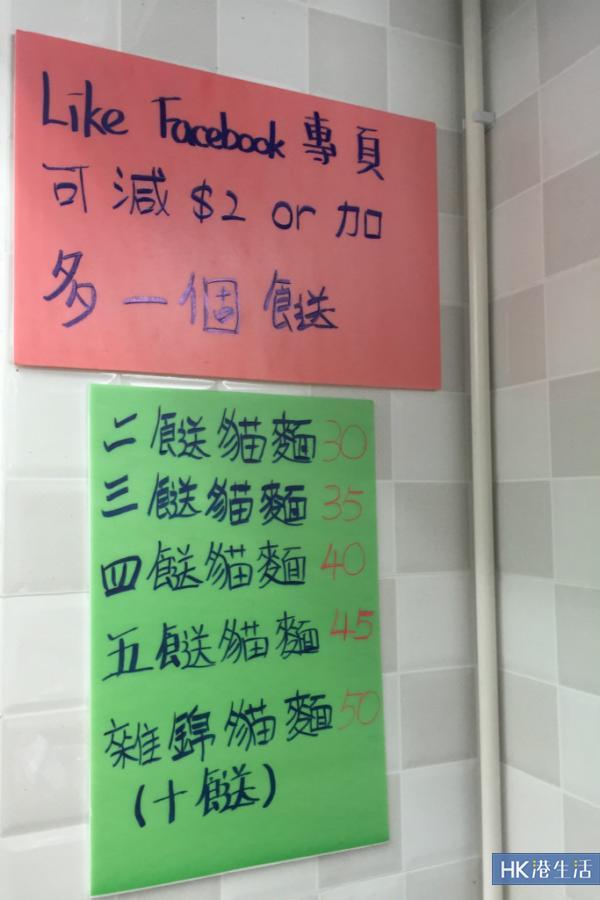 Like Facebook 專頁
可減 $2 or 加
多一個餸
二餸貓麵 30
三餸貓麵 35
四餸貓麵 40
五餸貓麵 45
雜錦貓麵 50
(十餸)
HK港生活